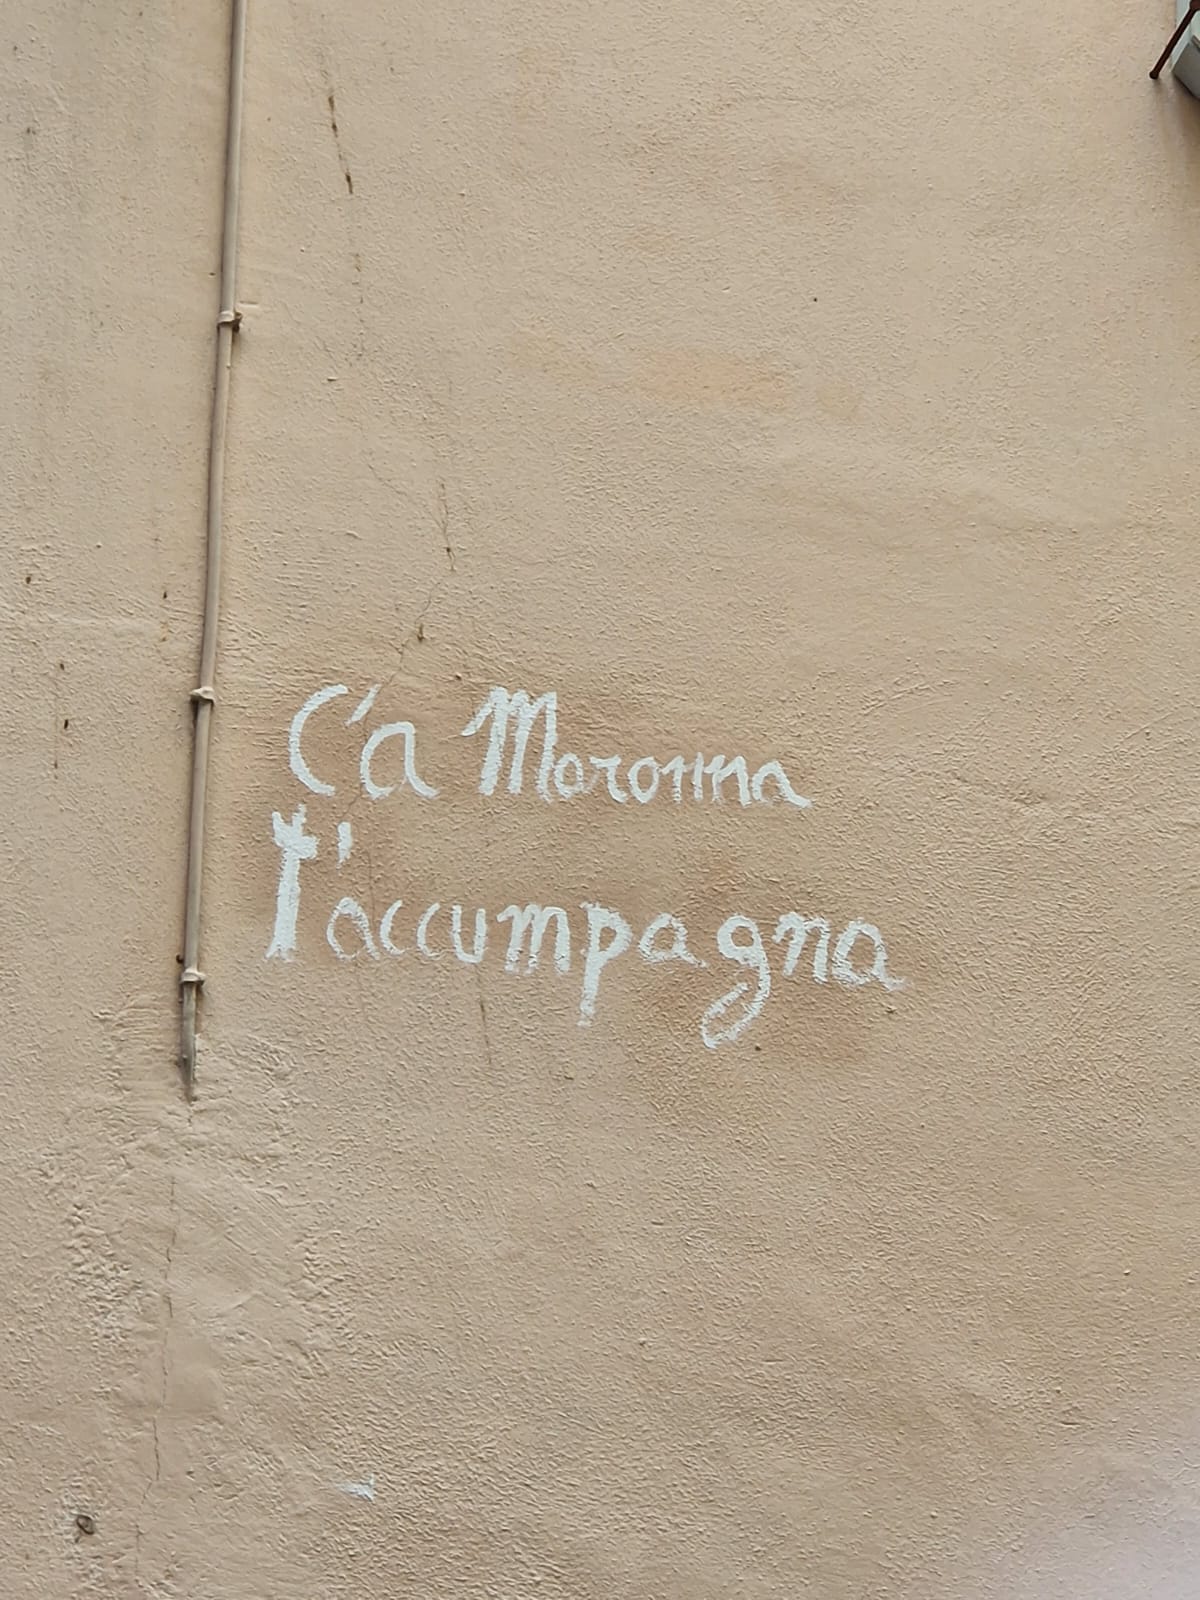 C'a Maronna
t'accumpagna